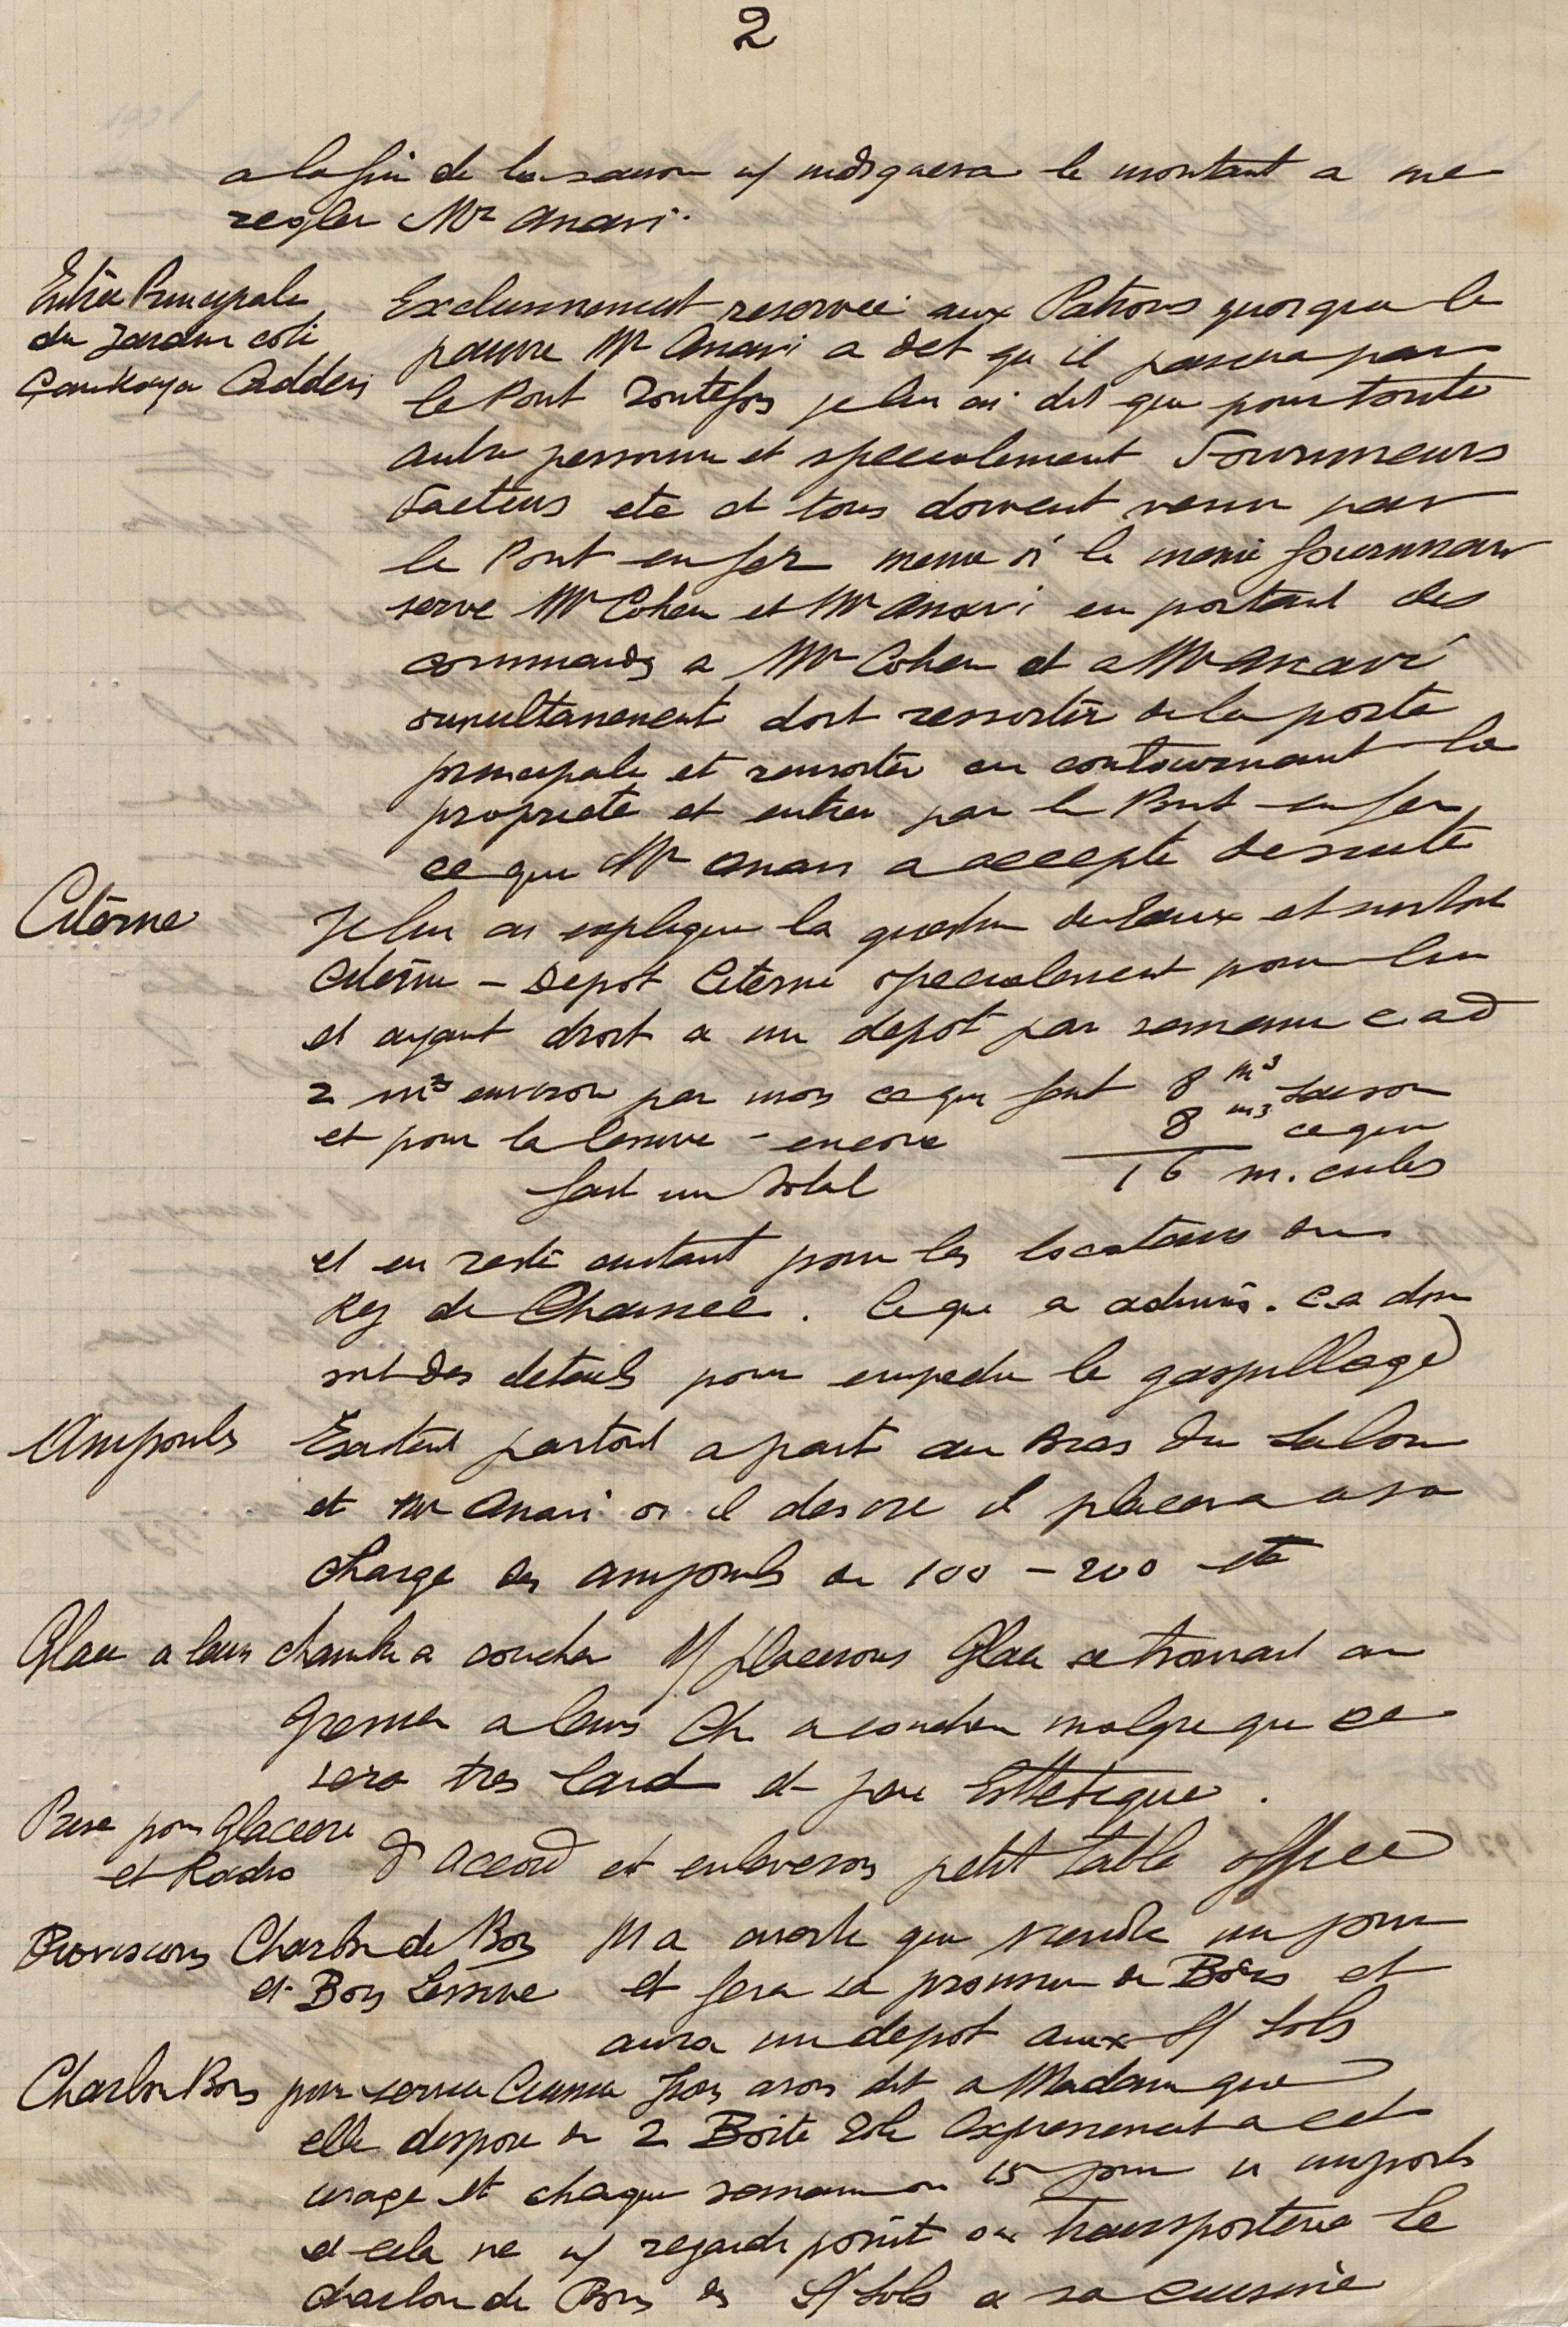 2
a la fin de la saison n/ indiquera le montant a me
regler Mr Anavi.
Entrée Principale
du Jardin coté
Çankaya Caddesi
Exclusivement reservée aux Patrons quoique le
pauvre Mr Anavi a dit qu il passera par
le Pont Toutefois je lui ai dit que pour toute
autre personne et specialement Fournisseurs
Facteurs etc et tous doivent venir par
le Pont en fer meme si le meme fournisseur
serve Mr Cohen et Mr Anavi en portant des
commandes a Mr Cohen et a Mr Anavi
simultanement doit ressortir de la porte
principale et ressortir en contournant la
propriete et entrer par le Pont en fer
ce que Mr Anavi a accepte de suite
Citerne
Je lui ai explique la question de l'eau et surtout
Citerne - Depot Citerne specialement pour lui
et ayant droit a un depot par semaine c a d
2 m3 environ par mois ce qui fait 8 m3 saison
et pour la lessive - encore 8 m3 ce qui
fait un Total 16 m. cubes
et en reste autant pour les locataires du
Rez de Chaussee. Ce que a admis. C.a don
sut des details pour empecher le gaspillage
Ampoules
Existent partout a part au Bras du Salon
et Mr Anavi si il desire il placera a sa
charge des ampoules de 100 - 200 etc
Glace a leur chambre a coucher N/ placerons Glace se trouvant au
Grenier a leurs Ch a coucher malgre que ce
sera tres laid et pas Esthetique.
Prise pour Glaciere
et Radio
D'accord et enleverons petit table office
Provisions Charbon de Bois
et Bois Lessive
M a averti que viendra un jour
et fera sa provision de Bois et
aura un depot aux S/ Sols
Charbon Bois pour service Cuisine Nous avons dit a Madame que
elle dispose de 2 Boite Tole Expressement a cet
usage et chaque semaine ou 15 jours n importe
et cela ne n/ regarde point on transportera le
charbon de Bois des S/ Sols a sa cuisine